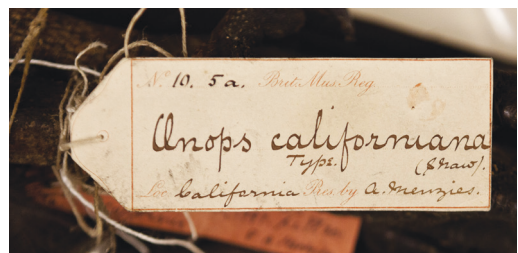 No. 10. 5a. Brit. Mus. Reg.
Anops californiana
Type. (Shaw).
Loc. California Pres. by A. Menzies.